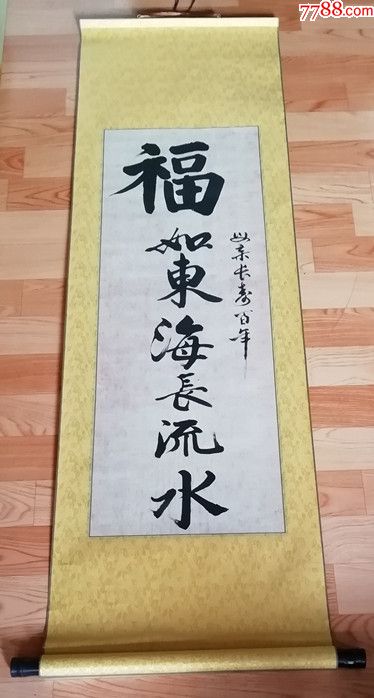 7788.com
福如東海長流水
母亲长寿百年